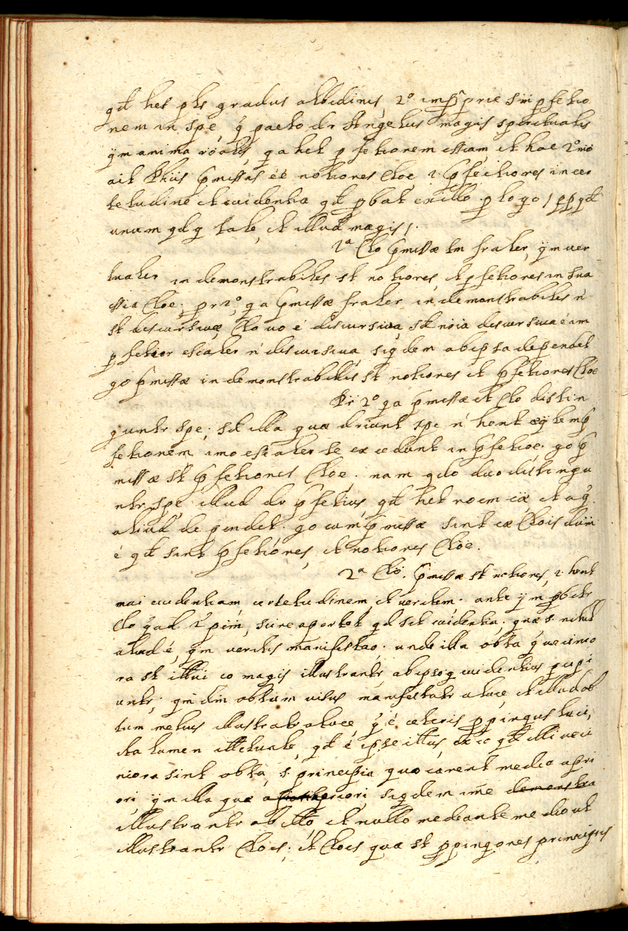 qd het pls gradus albedinis, 2º imp prie sm p fectio
nem in spe, q pacto dr Angelus magis spiritualis
qm anima rõalis q a het p fectionem essiam et hoc 2º mõ
ait Phüs pmissas eē notiores Cloe 2 p fectiores in cer
tetudine et evidentia qd p bat ex illo p logo / pp qd
unum qd q tale, et illud magis /.
2ª Clo pmissæ tm fraler, qm ver
tualer in demonstrabiles st notiores, et p fectiores in sua
essia Cloe; pr 1º, q a pmissæ fraler in demonstrabiles n
st discursivæ, Clo vo ē discursiva, sed noia discursiva ē im
p fectior essialer n discursiva, siq dem ab ip sa dependet
go pmissæ in demonstrabiles st notiores et p fectiores Cloe
Pr 2º q a pmissæ et Clo distin
guntr spe, sed illa quæ driunt spe n hent æqlem p
fectionem imo essialer se excedunt in p fectioe, go p
missæ st p fectiores Cloe, nam qdo duo distingu
ntr spe illud dr p fectius, qd het noem cæ et a q
aliud de pendet, go cum pmissæ sint cæ Clois dum
ē qd sint p fectiores, et notiores Cloe.
2ª Clo. pmissæ st notiores, 2 hent
mai evidentiam certetudinem et veritem. ante qm p betr
Clo quæd 2 pim, scire aportet qd sit evidentia; quæ s nihil
aliud ē, qm veritis manifestao. unde illa obta q vicinio
ra st illui eo magis illustrantr ab ipso q evidentius p cipi
untr; qm dm obtum visus manifestatr a luce, et illud ob
tum melius illustratr a luce q ē ceteris p pingus luci,
ita lumen illectuale, qd ē ipse illtus, et ic qd illi vici
niora sint obta, s. principia quæ carent medio a pri
ori, qm illa quæ a priori, siq dem ime
illustrantr ab illto, et nullo mediante medio ut
illustrantr Cloes; et Cloes quæ st p pinq ores principiis